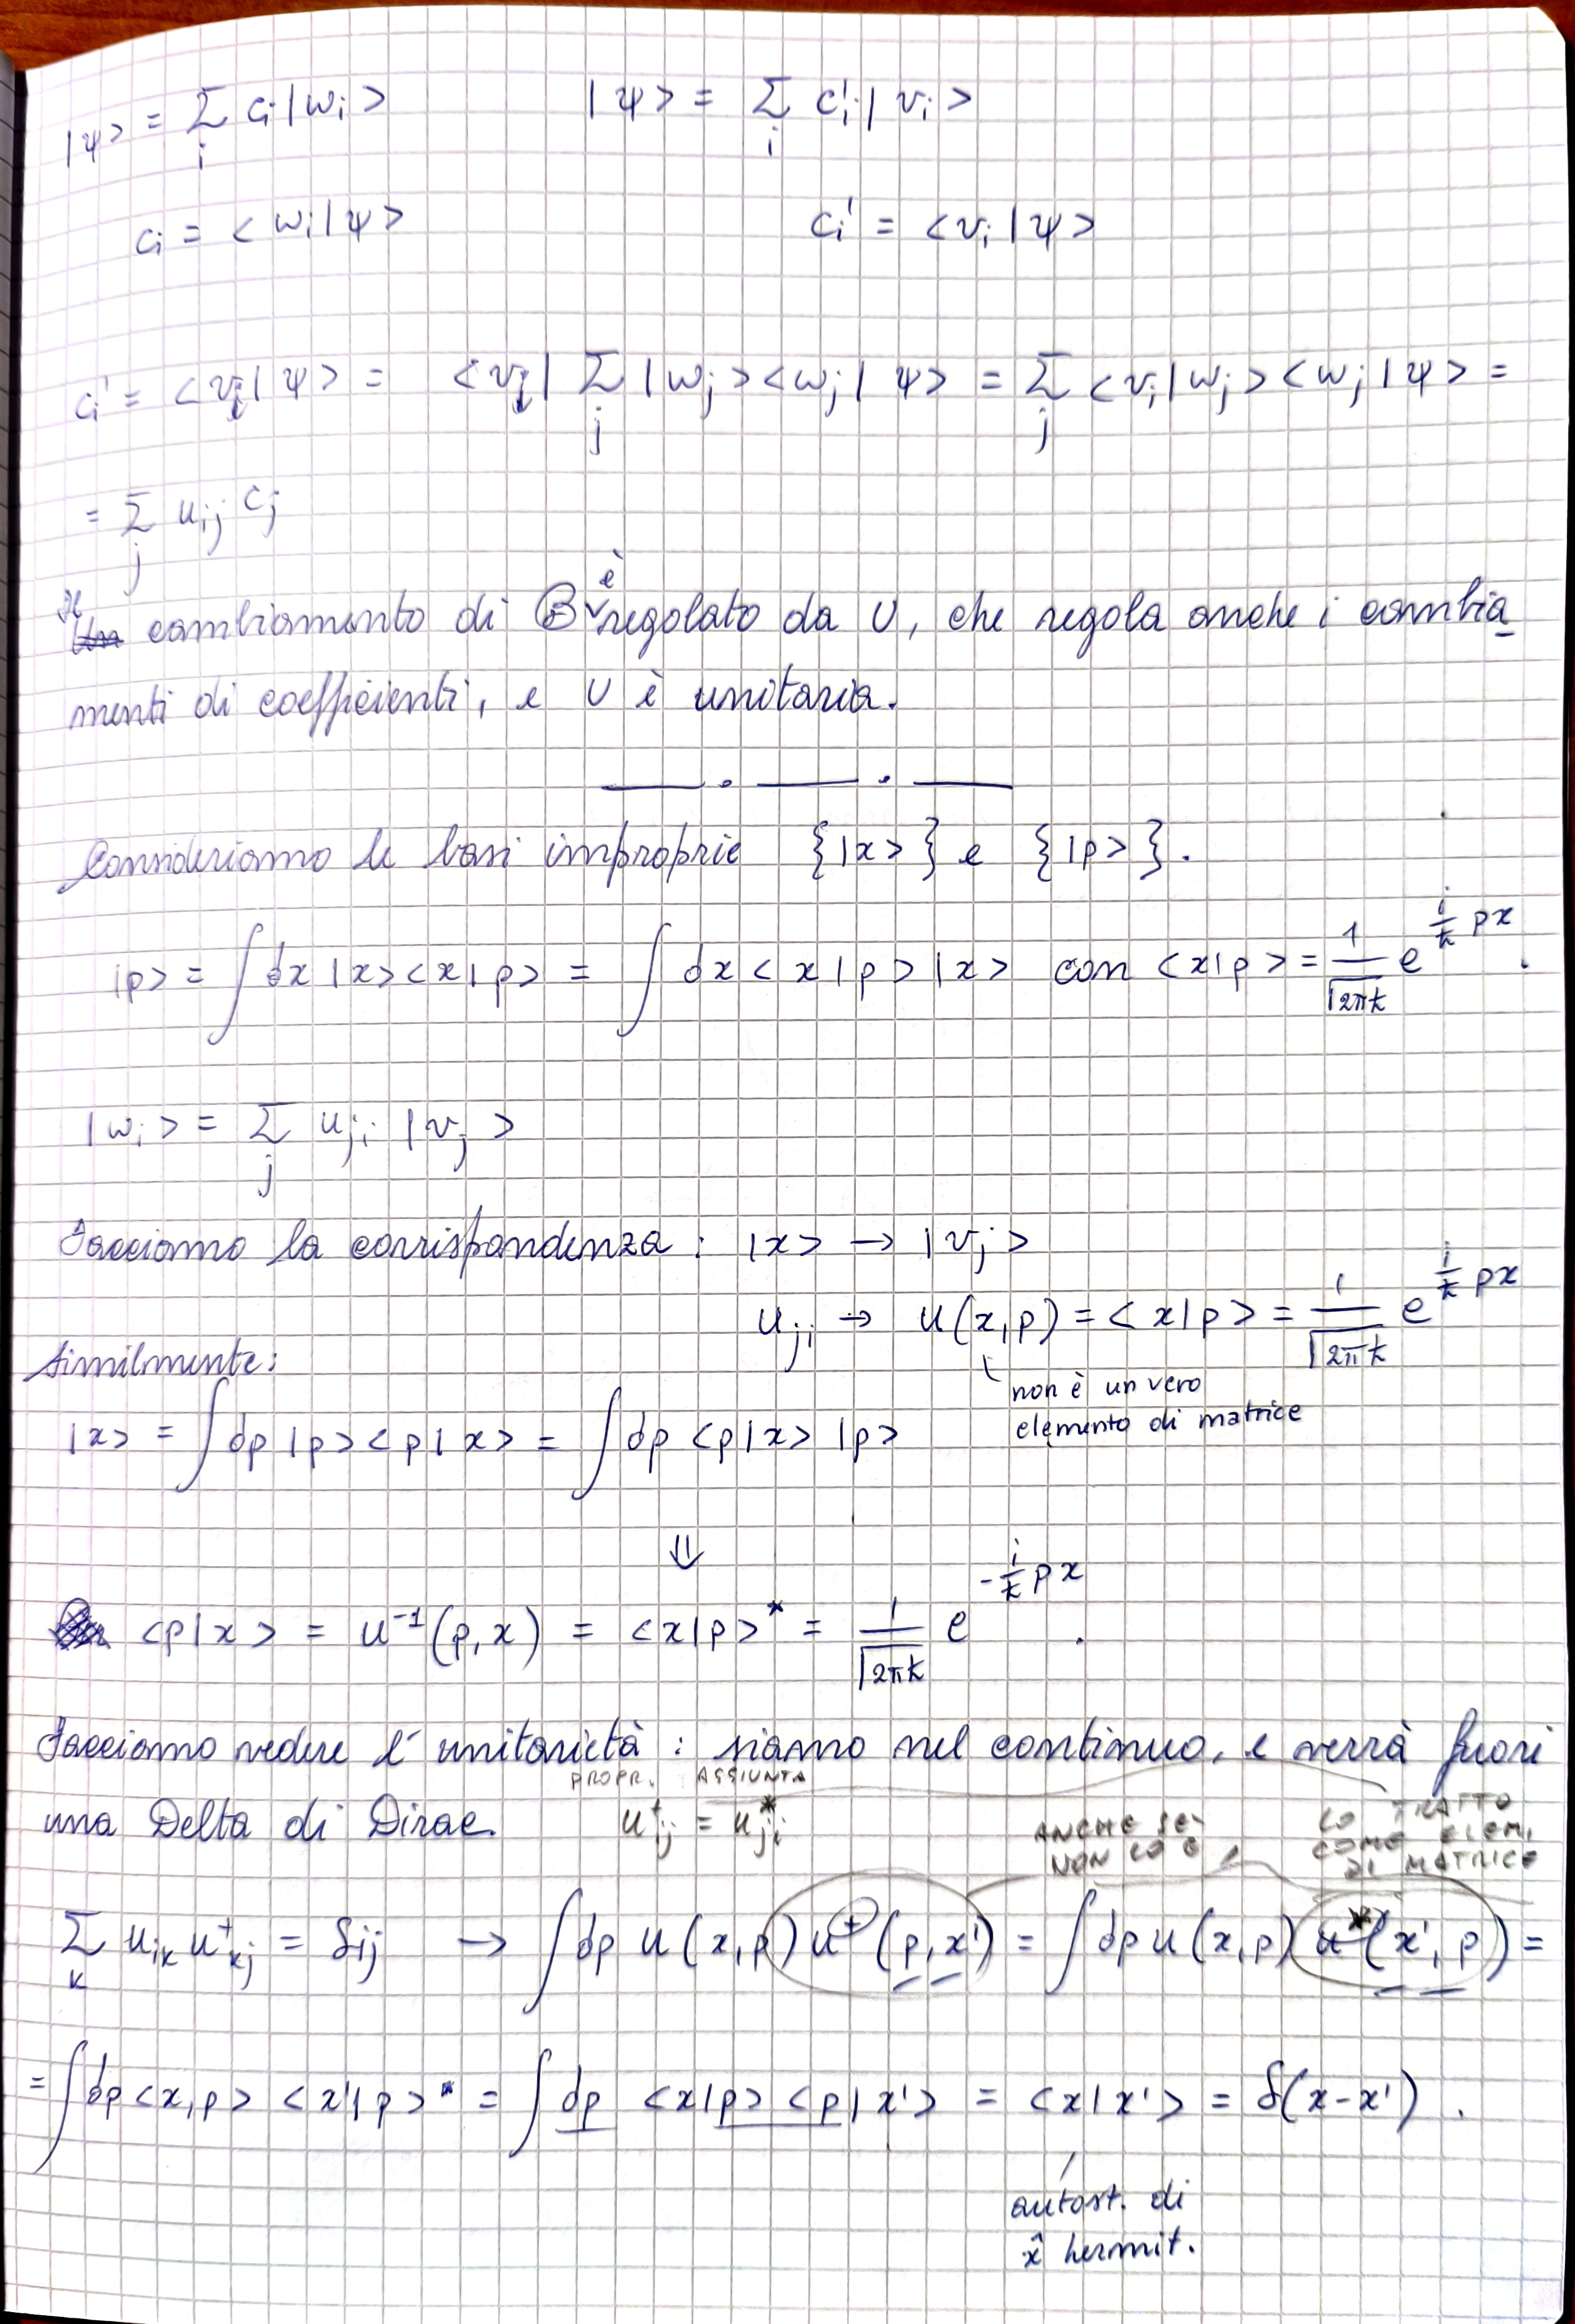 |ψ> = Σ_i c_i |w_i>    |ψ> = Σ_i c'_i |v_i>
c_i = <w_i|ψ>    c_i' = <v_i|ψ>
c_i' = <v_i|ψ> = <v_i| Σ_j |w_j><w_j|ψ> = Σ_j <v_i|w_j><w_j|ψ> =
= Σ_j u_ij c_j
Il cambiamento di B è regolato da U, che regola anche i cambia
menti di coefficienti, e U è unitaria.
Consideriamo le basi improprie {|x>} e {|p>}.
|p> = ∫dx |x><x|p> = ∫ dx <x|p> |x> con <x|p> = 1/√(2πħ) e^(i/ħ px).
|w_i> = Σ_j u_ji |v_j>
Facciamo la corrispondenza: |x> → |v_j>
u_ji → u(x,p) = <x|p> = 1/√(2πħ) e^(i/ħ px)
Similmente:
non è un vero
elemento di matrice
|x> = ∫dp |p><p|x> = ∫dp <p|x> |p>
⇓
<p|x> = u⁻¹(p,x) = <x|p>* = 1/√(2πħ) e^(-i/ħ px).
Facciamo vedere l'unitarietà: siamo nel continuo, e verrà fuori
PROPR. AGGIUNTA
una Delta di Dirac. u⁺_ij = u*_ji
ANCHE SE NON LO È
LO TRATTO COME ELEM. DI MATRICE
Σ_k u_ik u⁺_kj = δ_ij → ∫dp u(x,p) u⁺(p,x') = ∫dp u(x,p) u*(x',p) =
= ∫dp <x,p> <x'|p>* = ∫dp <x|p><p|x'> = <x|x'> = δ(x-x').
autost. di
x̂ hermit.